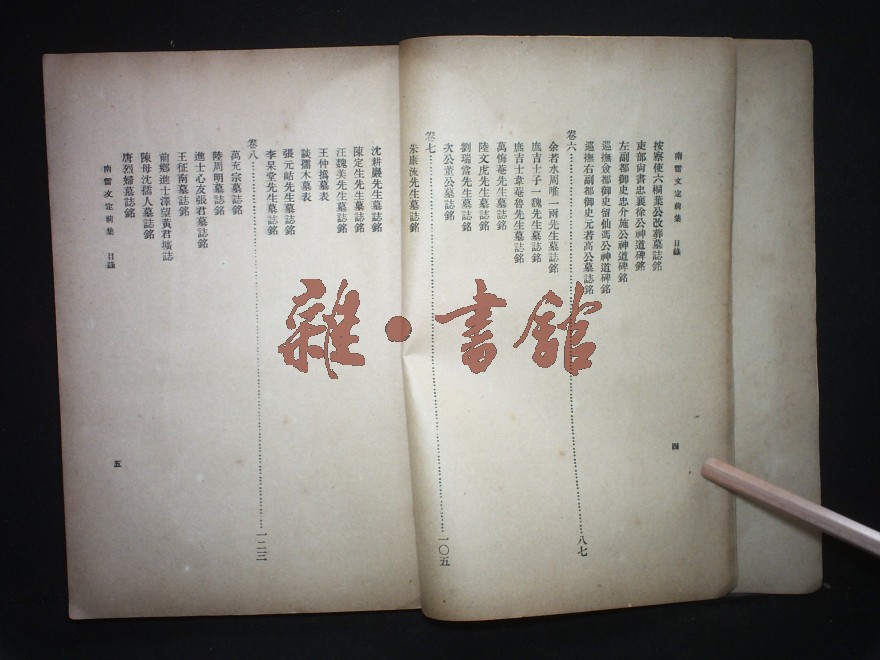 南雷文定前集　目錄
四
按察使六桐葉公改葬墓誌銘
吏部尙書忠襄徐公神道碑銘
左副都御史忠介施公神道碑銘
巡撫僉都御史留仙馮公神道碑銘
巡撫右副都御史元若高公墓誌銘
卷六……八七
余若水周唯一兩先生墓誌銘
庶吉士子一魏先生墓誌銘
庶吉士韋菴魯先生墓誌銘
萬悔菴先生墓誌銘
陸文虎先生墓誌銘
劉瑞當先生墓誌銘
次公董公墓誌銘
卷七……一〇五
朱康流先生墓誌銘
沈耕巖先生墓誌銘
陳定生先生墓誌銘
汪魏美先生墓誌銘
王仲撝墓表
談孺木墓表
張元岵先生墓誌銘
李杲堂先生墓誌銘
卷八……一二三
萬充宗墓誌銘
陸周明墓誌銘
進士心友張君墓誌銘
王征南墓誌銘
前鄉進士澤望黃君壙誌
陳母沈孺人墓誌銘
唐烈婦墓誌銘
南雷文定前集　目錄
五
雜·書館